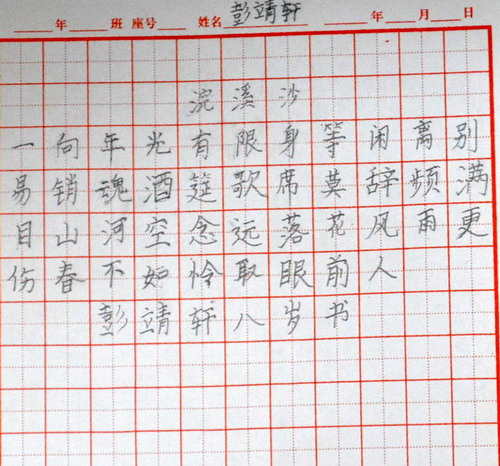 ____年____班 座号____ 姓名 彭靖轩 ____年____月____日
浣溪沙
一向年光有限身等闲离别
易销魂酒筵歌席莫辞频满
目山河空念远落花风雨更
伤春不如怜取眼前人
彭靖轩八岁书